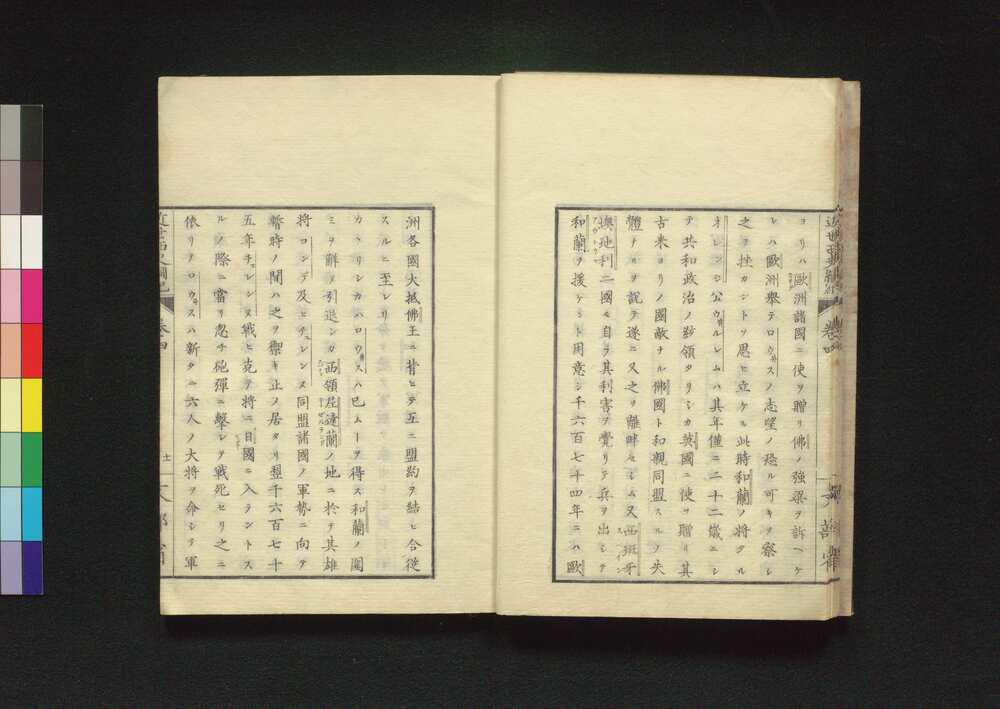 ヨリハ歐洲諸國ニ使ヲ贈リ佛ノ強梁ヲ訴ヘケ
レハ歐洲舉テロウヰスノ志望ノ恐ル可キヲ察シ
之ヲ挫カントソ思ヒ立ケル此時和蘭ノ將タル
オレンジ公ウルレムハ其年僅ニ二十二歳ニシ
テ共和政治ノ首領タリシカ英國ニ使ヲ贈リ其
古来ヨリノ國敵ナル佛國ト和親同盟スルノ失
體ナルヲ説テ遂ニ又之ヲ離畔セシム又西班牙
澳地利二國モ自ラ其利害ヲ覺リテ兵ヲ出シテ
和蘭ヲ援ケント用意シ千六百七十四年ニハ歐
近世西史綱紀
卷四
文部省
洲各國大抵佛王ニ背ヒテ互ニ盟約ヲ結ヒ合従
スルニ至レリ
カヽリシカハロウヰスハ已ムヿヲ得ス和蘭ノ圍
ミヲ解テ引退シカ西領尼達蘭ノ地ニ於テ其雄
將コンデ及ヒチュレンヌ同盟諸國ノ軍勢ニ向テ
暫時ノ間ハ之ヲ禦キ止メ居タリ翌千六百七十
五年チュレンヌ戰ヒ克テ將ニ日國ニ入ラントス
ルノ際ニ當リ忽チ砲彈ニ撃レテ戰死セリ之ニ
依リテロウヰスハ新タニ六人ノ大將ヲ命シテ軍
近世西史綱紀
卷四
文部省